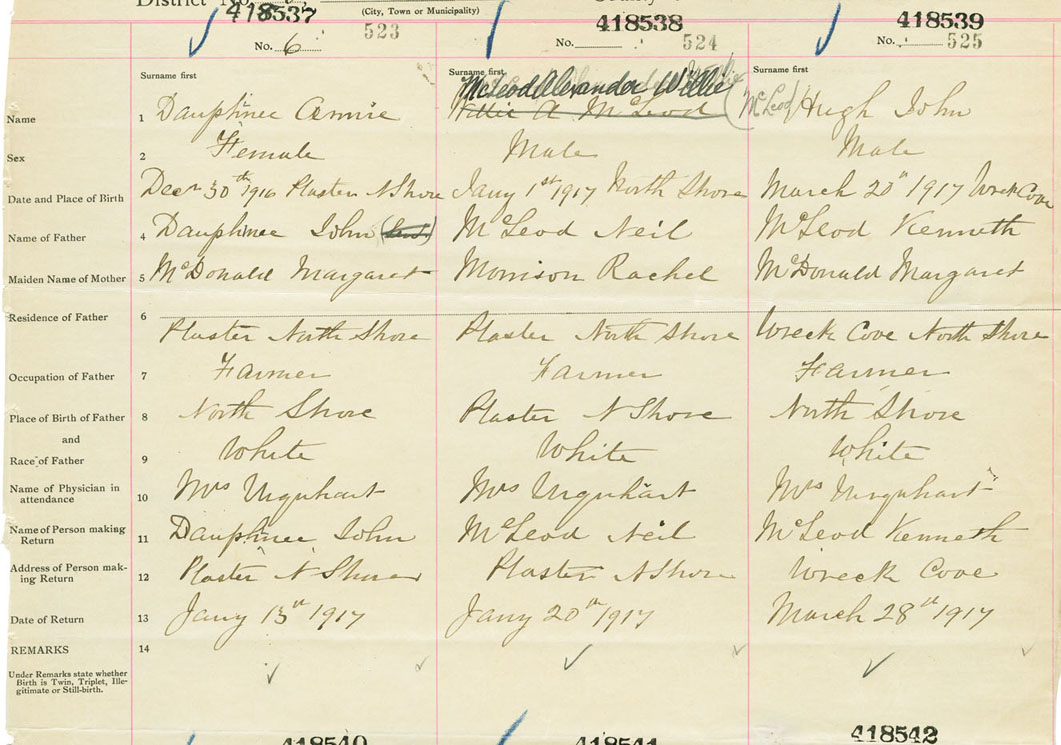 District No.
(City, Town or Municipality)
418537 418538 418539
No. 6 523 No. 524 No. 525
Surname first Surname first Surname first
McLeod Alexander Willie
Name 1 Dauphinee Willie A McLeod (McLeod) Hugh John
Sex 2 Female Male Male
Date and Place of Birth Decr 30th 1916 Plaster N Shore Jany 1st 1917 North Shore March 20th 1917 Wreck Cove
Name of Father 4 Dauphinee John McLeod Neil McLeod Kenneth
Maiden Name of Mother 5 McDonald Margaret Morrison Rachel McDonald Margaret
Residence of Father 6 Plaster North Shore Plaster North Shore Wreck Cove North Shore
Occupation of Father 7 Farmer Farmer Farmer
Place of Birth of Father 8 North Shore Plaster N Shore North Shore
and
Race of Father 9 White White White
Name of Physician in attendance 10 Mrs Urquhart Mrs Urquhart Mrs Urquhart
Name of Person making Return 11 Dauphinee John McLeod Neil McLeod Kenneth
Address of Person making Return 12 Plaster N Shore Plaster N Shore Wreck Cove
Date of Return 13 Jany 13th 1917 Jany 20th 1917 March 28th 1917
REMARKS 14
Under Remarks state whether
Birth is Twin, Triplet, Ille-
gitimate or Still-birth.
418540 418541 418542